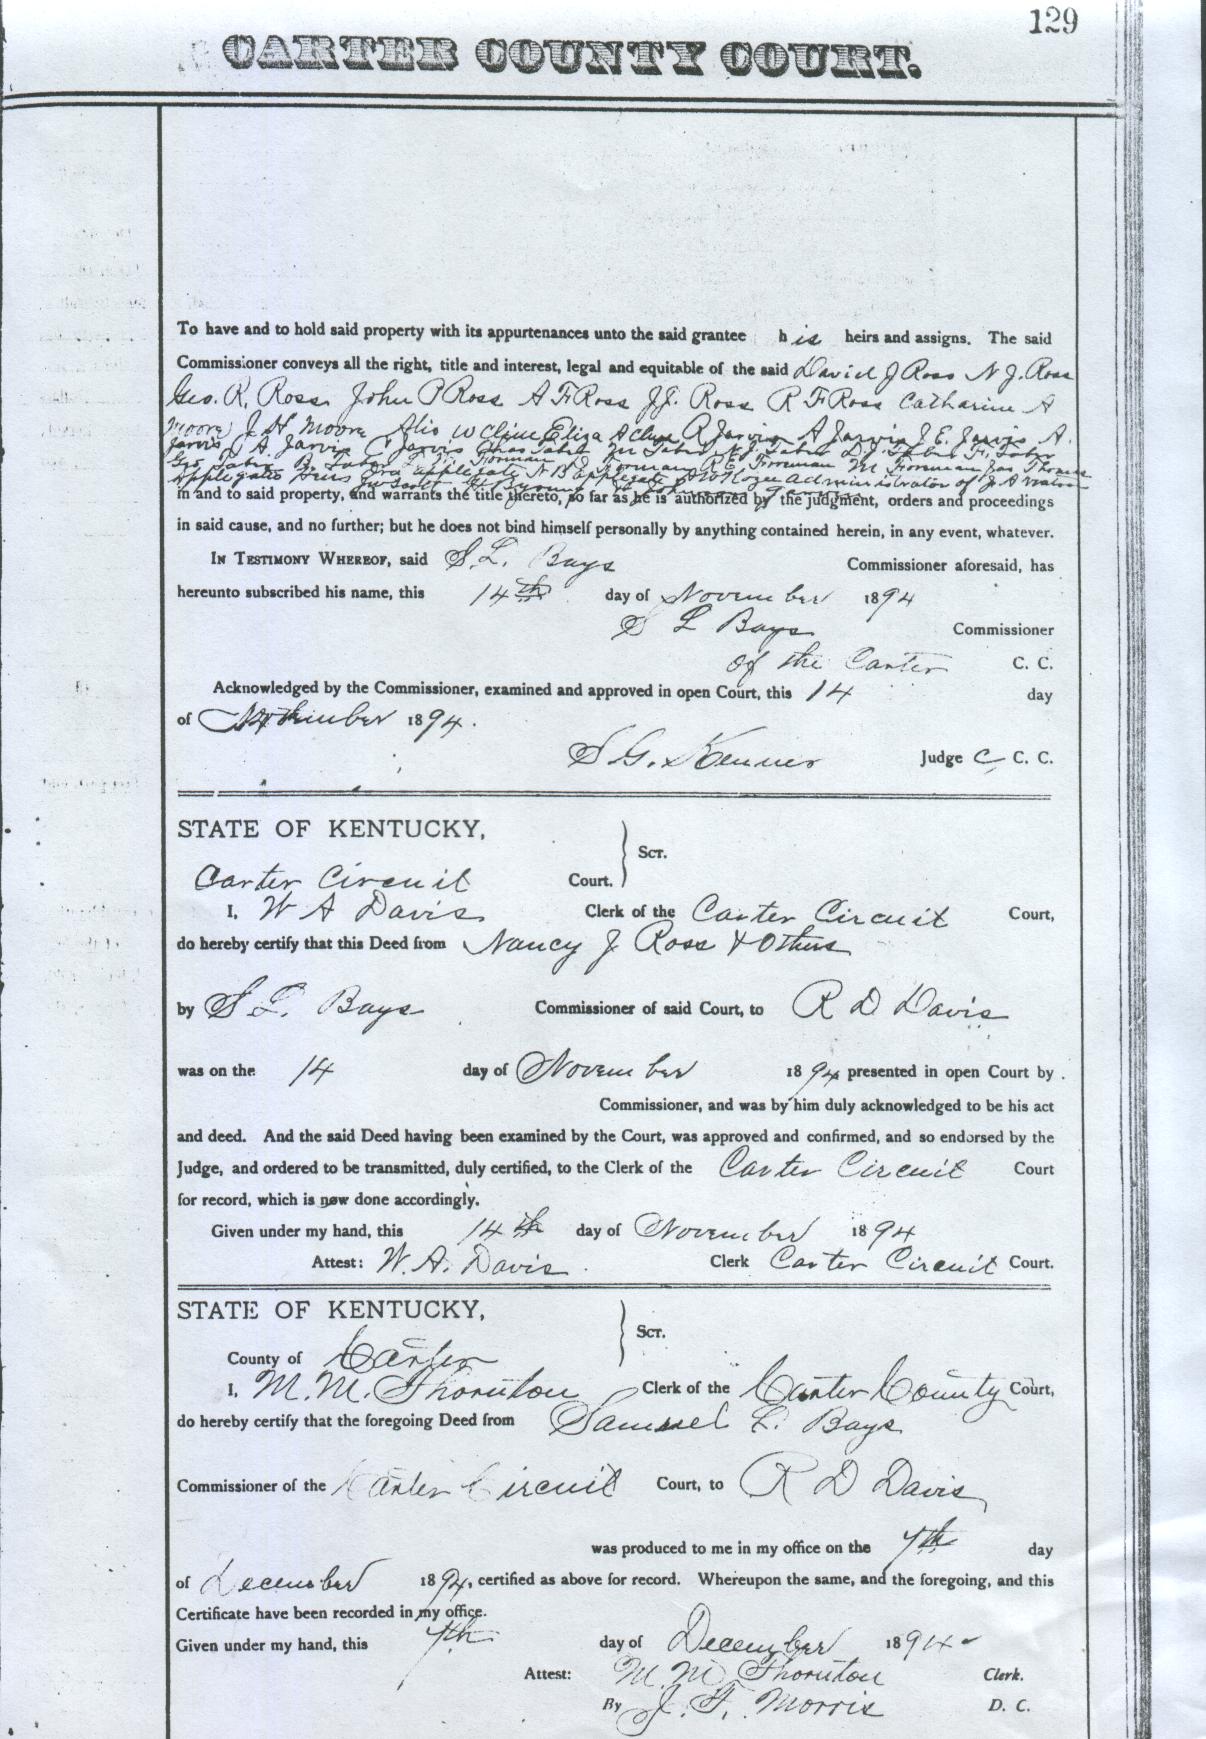 129
CARTER COUNTY COURT.
To have and to hold said property with its appurtenances unto the said grantee his heirs and assigns. The said
Commissioner conveys all the right, title and interest, legal and equitable of the said David J Ross N J. Ross
Geo. R. Ross John P Ross A F Ross J J. Ross R F Ross Catharine A
Moore J. H Moore W Cline Eliza A Cline R Jarvis A Jarvis J. E. Jarvis A.
Jarvis A. Jarvis Jarvis
Foreman M Foreman Jas Thomas
Applegate heirs Scott administrator of J. A
in and to said property, and warrants the title thereto, so far as he is authorized by the judgment, orders and proceedings
in said cause, and no further; but he does not bind himself personally by anything contained herein, in any event, whatever.
IN TESTIMONY WHEREOF, said S. L. Bays Commissioner aforesaid, has
hereunto subscribed his name, this 14th day of November 1894
S L Bays Commissioner
of the Carter C. C.
Acknowledged by the Commissioner, examined and approved in open Court, this 14 day
of 1894.
S. G. Kenner Judge C. C. C.
STATE OF KENTUCKY,
Sct.
Carter Circuit Court.
I, W A Davis Clerk of the Carter Circuit Court,
do hereby certify that this Deed from Nancy J Ross & Others
by S. L. Bays Commissioner of said Court, to R D Davis
was on the 14 day of November 1894 presented in open Court by
Commissioner, and was by him duly acknowledged to be his act
and deed. And the said Deed having been examined by the Court, was approved and confirmed, and so endorsed by the
Judge, and ordered to be transmitted, duly certified, to the Clerk of the Carter Circuit Court
for record, which is now done accordingly.
Given under my hand, this 14th day of November 1894
Attest: W. A. Davis Clerk Carter Circuit Court.
STATE OF KENTUCKY,
Sct.
County of Carter
I, M. M. Thornton Clerk of the Carter County Court,
do hereby certify that the foregoing Deed from Samuel L. Bays
Commissioner of the Carter Circuit Court, to R D Davis
was produced to me in my office on the 7th day
of December 1894, certified as above for record. Whereupon the same, and the foregoing, and this
Certificate have been recorded in my office.
Given under my hand, this 7th day of December 1894
Attest: M. M Thornton Clerk.
By J. F. Morris D. C.